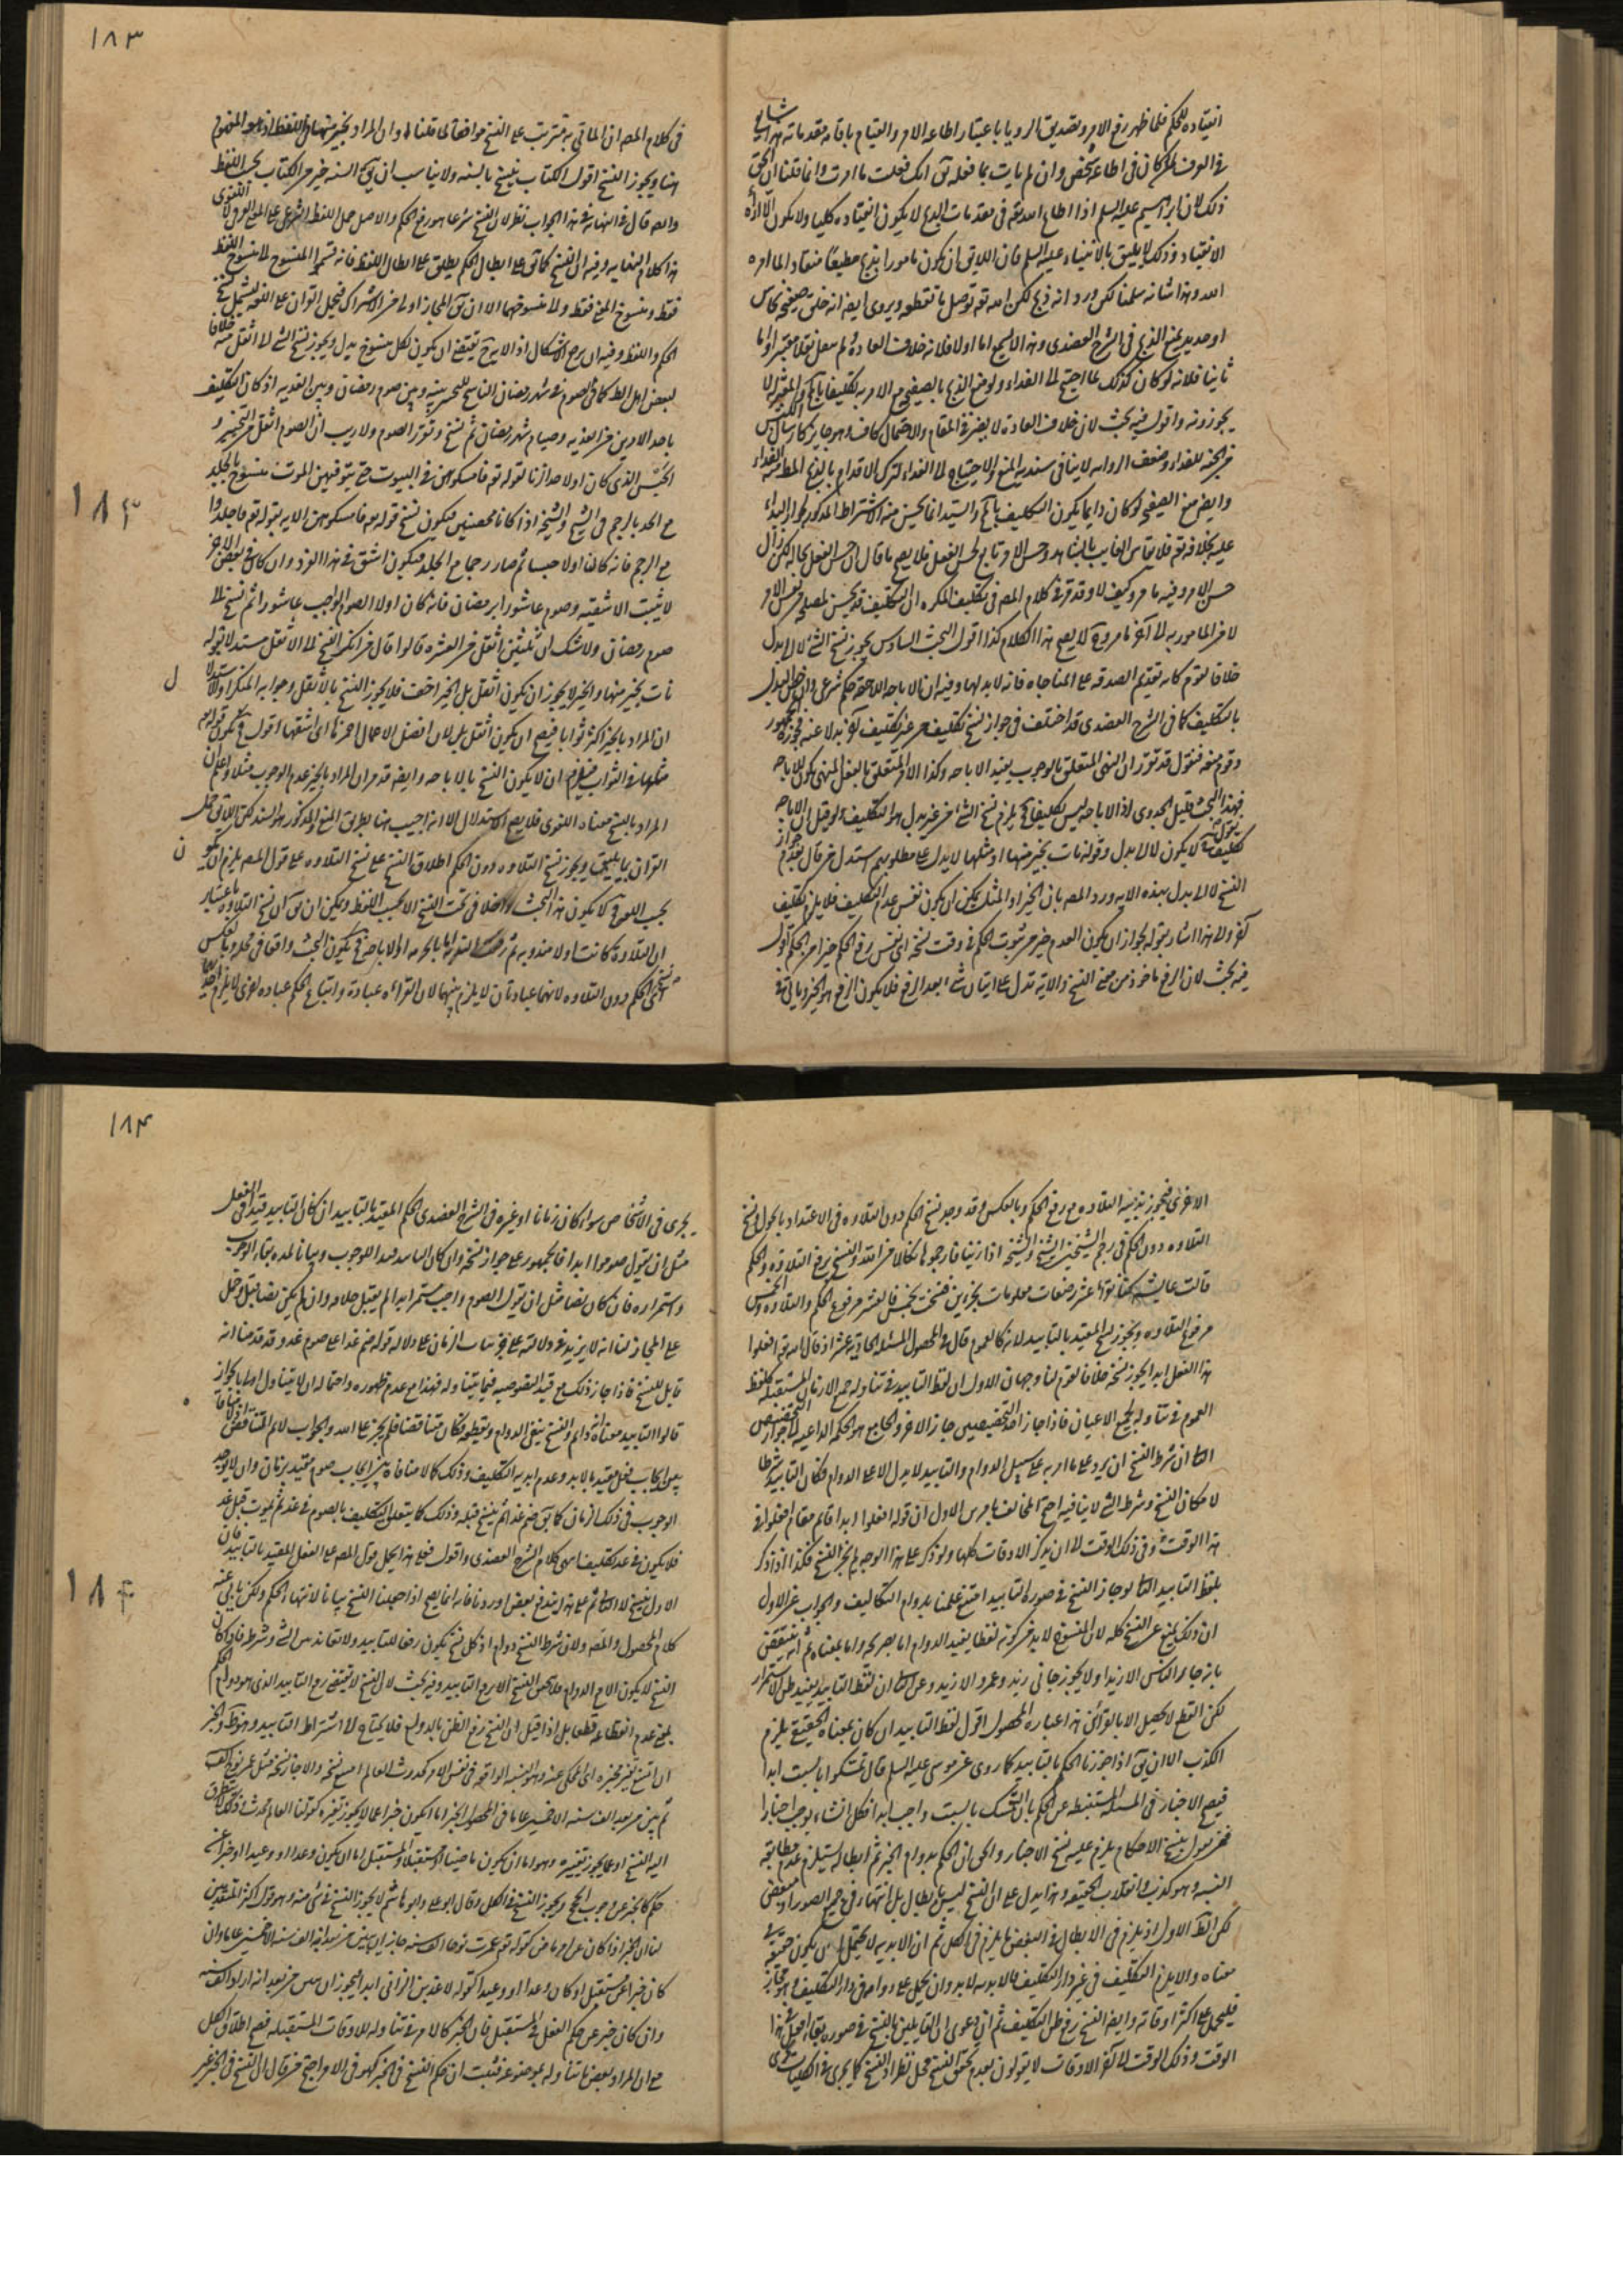 ١٨٣
انقياده للحكم فلما ظهر رفع الامر وتصديق الرويا باعتبار اطاعه الامر والقيام باقامه مقدماته شايع
فى العرف لمن كان فى اطاعه شخص وان لم يات بما فعله انك فعلت ما امرت وانما قلنا ان الحق
ذلك لان ابراهيم عليه السلم اذا اطاع الله تعه فى مقدمات الذبح لا يكون انقياده كليا ولا يكون
الانقياد وذلك لا يليق بالانبياء عليه السلم فان اللايق ان يكون مامورا بذبح مطيعا منقادا لما امره
الله وهذا شانه سلمنا لكن ورد انه ذبح لكن الله تعه توصل ما تقطعه ويروى ايضا انه خلق صفحه نحاس
او حديد يمنع الذبح فى الشرح العضدى وهذا لا يسمع اما اولا فلانه خلاف العادة ولم ينقل نقلا معتبرا واما
ثانيا فلانه لو كان كذلك لما احتيج لما الفداء ولو منع الذبح بالصفيح مع الامر به لكان تكليفا بالمحال
يجوزونه واقول فيه بحث لان خلاف العادة لا يضر فى المقام والاحتمال كاف وهو جايز كارسال الكبش
من الجنه للفداء وضعف الروايه لا ينافى سنديه المنع والاحتياج لما الفداء لترك الاقدام بالذبح
وايضا منع الصفيحه لو كان دايما يكون التكليف بالمحال والسيد انما يحسن منه الاشتراط المذكور لجواز البداء
عليه بخلافه تعه فلا يقاس الغايب بالشاهد وحسن الامر تابع لحسن الفعل فلا يصح ما قال ان حسن الفعل بحاله لكن زال
حسن الامر وفيه ما مر وكيف لا وقد قرر فى كلام المصه فى تكليف المكره ان التكليف قد يحسن لمصلحه فى نفس الامر
لا من المامور به لما آخر ما مر وح لا يصح هذا الكلام كذا اقول البحث السادس يجوز نسخ الشئ لا الى بدل
خلافا لقوم كايه تقديم الصدقه على المناجاه فانه لا بدل لها وفيه ان الاباحه اللاحقه حكم شرعى
بالتكليف كما فى الشرح العضدى قد اختلف فى جواز نسخ تكليف من غير تكليف آخر بدلا عنه فجوزه الجمهور
وقوم منعه فنقول قد تقرر ان النهى المتعلق بالوجوب يفيد الاباحه وكذا الامر المتعلق بالفعل المنهى يكون للاباحه
فهذا البحث قليل الجدوى اذ الاباحه ليس تكليفا فلا يلزم نسخ الشئ من غير بدل هو التكليف ولو قيل ان الاباحه
تكليف لا يكون لا الى بدل وقوله نات بخير منها او مثلها لا يدل على مطلوبهم استدل من قال بعدم جواز
النسخ لا الى بدل بهذه الايه ورد المصه بان الخير او المثل يمكن ان يكون نفس عدم التكليف فلا يلزم تكليف
آخر ولا هذا اشار بقوله لجواز ان يكون العدم خير من ثبوت الحكم فى وقت نسخه اى نفس رفع الحكم خيرا من الحكم اقول
فيه بحث لان الرفع ماخوذ من معنى النسخ والايه تدل على اتيان شئ بعد الرفع فلا يكون الرفع هو الخير وياتى فى
فى كلام المصه ان الماتى به مترتب على النسخ موافقا لما قلنا وان المراد بخير منها فى اللفظ اذ هو المفهوم
هنا ويجوز النسخ اقول الكتاب ينسخ بالسنه ولا يناسب ان يق السنه خير من الكتاب بحسب اللفظ
والمصه قال فى النهايه فى هذا الجواب نظر لان النسخ شرعا هو رفع الحكم والاصل حمل اللفظ الشرعى على المعنى العرفى لا اللغوى
هذا كلام النهايه وفيه ان النسخ كما يق على ابطال الحكم يطلق على ابطال اللفظ فانه قسموا المنسوخ لما منسوخ اللفظ
فقط ومنسوخ المعنى فقط ولا منسوخهما الا ان يق المجاز اولى من الاشتراك فيحمل القران على اللغه ليشمل نسخ
الحكم واللفظ وفيه ان يرجح الاشكال اذ الايه ح يقتضى ان يكون لكل منسوخ بدل ويجوز نسخ الشئ لا اثقل منه خلافا
لبعض اهل الظ كما فى الصوم فى شهر رمضان الناسخ للتخيير بينه وبين صوم رمضان وبين الفديه اذ كان التكليف
باحد الامرين من الفديه وصيام شهر رمضان ثم نسخ وتقرر الصوم ولا ريب ان الصوم اثقل من التخيير و
الحبس الذى كان اولا حد الزنا لقوله تعه فامسكوهن فى البيوت حتى يتوفيهن الموت منسوخ بالجلد
مع الحد بالرجم فى الشيخ والشيخه اذا كانا محصنين فيكون نسخ قوله تعه فامسكوهن الايه بقوله تعه فاجلدوا
مع الرجم فانه كان اولا حبسا ثم صار رجما مع الجلد فيكون اشق فى هذا الفرد وان كان فى بعض الاخر
لا يثبت الاشقيه وصوم عاشورا برمضان فانه كان اولا الصوم الواجب عاشورا ثم نسخ لما
صوم رمضان ولا شك ان ثلثين اثقل من العشره قالوا قال من انكر النسخ لما الاثقل مستدلا بقوله
نات بخير منها والخير لا يجوز ان يكون اثقل بل الخير اخف فلا يجوز النسخ بالاثقل وجوابه المنكر اولا
ان المراد بالخير اكثر ثوابا فيصح ان يكون اثقل بل لان افضل الاعمال احمزها اى اشقها اقول فح يكون قوله او
مثلها فى الثواب فيلزم ان لا يكون النسخ بالاباحه وايضا قد مر ان المراد بالخير عدم الوجوب مثلا واعلم ان
المراد بالنسخ معناه اللغوى فلا يصح الاستدلال الا انه اجيب هنا بطريق المنع والمذكور هو السند لكن اللايق حمل
القران بما يليق ويجوز نسخ التلاوه دون الحكم اطلاق النسخ على نسخ التلاوه على قول المصه يلزم ان يكون
بحسب اللغوى كلا يكون هذا البحث داخلا فى تحت النسخ الا بحسب اللفظ ويمكن ان يق ان نسخ التلاوه باعتبار
ان التلاوه كانت اولا مندوبه ثم رفعت التلاوه بالحرمه او الاباحه فح يكون البحث واقعا فى محله وبالعكس
نسخ الحكم دون التلاوه لانهما عبادتان لا يلزم بينهما لان القراءه عبادة واتباع الحكم عباده اخرى لا يلزم احديهما
١٨٤
١٨٤
الاخرى فيجوز بدنسه التلاوه مع رفع الحكم وبالعكس وقد وجد نسخ الحكم دون التلاوه فى الاعتداد بالحول ونسخ
التلاوه دون الحكم فى رجم الشيخين الشيخ والشيخه اذا زنيا فارجموهما نكالا من الله والنسخ برفع التلاوه والحكم
قالت عايشه كان فيما عشر رضعات معلومات يحرمن فنسخت بخمس فالعشر مرفوع الحكم والتلاوه والخمس
مرفوع التلاوه ويجوز نسخ المقيد بالتابيد لانه كالعموم قال فى المحصول المسئله الحاديه عشر اذ قال الله تعه افعلوا
هذا الفعل ابدا يجوز نسخه خلافا لقوم لنا وجهان الاول ان لفظ التابيد فى تناوله جميع الازمان المستقبله كلفظ
العموم فى تناوله لجميع الاعيان فاذا جاز احد التخصيصين جاز الاخر والجامع هو الحكمه الداعيه لما جواز التخصيص
الثانى ان شرط النسخ ان يرد على ما امر به على سبيل الدوام والتابيد لا يدل الا على الدوام فكان التابيد شرطا
لامكان النسخ وشرط الشئ لا ينافيه احتج المخالف بامرين الاول ان قوله افعلوا ابدا قايم مقام افعلوا فى
هذا الوقت وفى ذلك الوقت لما ان يذكر الاوقات كلها ولو ذكر على هذا الوجه لم يجز النسخ فكذا اذا ذكر
بلفظ التابيد الثانى لو جاز النسخ فى صوره التابيد امتنع علمنا بدوام التكاليف والجواب عن الاول
ان ذلك يمنع عن النسخ كله لان المنسوخ لا بد من كونه لفظا يفيد الدوام اما بصريحه واما بمعناه ثم انه ينتقض
بانه جاز الناس الا زيدا ولا يجوز جانى زيد وعمرو الا زيد وعن الثانى ان لفظ التابيد يفيد ظن الاستمرار
لكن القطع لا يحصل الا بالقرائن هذا عباره المحصول اقول لفظ التابيد ان كان بمعناه الحقيقى يلزم
الكذب الا ان يق اذا جوزنا الحكم بالتابيد كما روى عن موسى عليه السلم قال تمسكوا بالسبت ابدا
فيصح الاخبار فى المسئله المستنبطه عن الحكم بان التمسك بالسبت واجب ابدا فكل انشاء يوجب اخبارا
فمن يقول بنسخ الاحكام يلزم عليه نسخ الاخبار والحق ان الحكم بدوام الخبر ثم ابطاله يستلزم عدم مطابقه
النسبه وهو كذب وانقلاب الحقيقه وهذا يدل على ان النسخ ليس بابطال بل انتهاء فى جميع الصور او بعض
لكن الظ الاول اذ يلزم فى الابطال فى البعض ما يلزم فى الكل ثم ان الابديه لا يحتمل ان يكون حقيقه فى
معناه والا يلزم التكليف فى غير دار التكليف فالابديه لا بد وان يحمل على دوام فى دار التكليف وهو مجاز
فليحمل على اكثر اوقاته وايضا النسخ رفع ظن التكليف ثم ان دعوى ان القايلين بالنسخ فى صوره بقاء افعل فى هذا
الوقت وذلك الوقت لما آخر الاوقات لا يقولون بعدم تحقق النسخ محل نظر اذ النسخ كما يجرى فى الكليات
يجرى فى الاشخاص سواء كان زمانا او غيره فى الشرح العضدى الحكم المقيد بالتابيد ان كان التابيد قيدا فى الفعل
مثل ان يقول صوموا ابدا فالجمهور على جواز نسخه وان كان التابيد قيدا للوجوب وبيانا لمده بقاء الوجوب
واستمراره فان كان نصا مثل ان يقول الصوم واجب مستمر ابدا لم يقبل خلافه وان لم يكن نصا قبل وحمل
على المجاز لنا انه لا يزيد فى دلالته على جزئيات الزمان على دلاله قوله صم غدا على صوم غد وقد قدمنا انه
قابل للنسخ فاذا جاز ذلك مع قيد النصوصيه فيما يتناوله فهذا مع عدم ظهوره واحتماله ان لا يتناول اولى بالجواز
قالوا التابيد معناه انه دايم والنسخ ينفى الدوام ويقطعه فكان متناقضا فلم يجز على الله والجواب لا نم التناقض اذ لا منافاه
بين ايجاب فعل مقيد بالابد وعدم ابديه التكليف وذلك كما لا منافاه بين ايجاب صوم مقيد بزمان وان لا يوجد
الوجوب فى ذلك الزمان كما يق صم غدا ثم ينسخ قبله وذلك كما يتعلق التكليف بالصوم فى غد ثم يموت قبل غد
فلا يكون فى غد تكليف انتهى كلام الشرح العضدى واقول فعلى هذا يحمل قول المصه على الفعل المقيد بالتابيد فان
الاول ينسخ لا الثانى ثم على هذا يندفع بعض ما اوردنا فانه انما يصح اذا جعلنا النسخ بيانا لانتهاء الحكم ولكن يابى عنه
كلام المحصول والمصه ولان شرط النسخ دوام اذ كل نسخ يكون رفعا للتابيد ولا تعاند بين الشئ وشرطه فاذا كان
النسخ لا يكون الا مع الدوام فلا يحسن النسخ الا مع التابيد وفيه بحث لان النسخ لا يقتضى رفع التابيد الذى هو دوام الحكم
بمعنى عدم انقطاعه قطعا بل اذا قيل ان النسخ رفع الظن بالدوام فلا يحتاج لا اشتراط التابيد وهو ظ والخبر
ان امتنع تغير مخبره اى المحكى عنه وهو النسبه الواقعه فى نفس الامر كحدوث العالم امتنع نسخه والا جاز نسخه مثل عمر نوح الف
ثم يبين من بعد الف سنه الا خمسين عاما فى المحصول الخبر اما ان يكون خبرا عما لا يجوز تغيره كقولنا العالم محدث وذلك لا يتطرق
اليه النسخ او عما يجوز تغييره وهو اما ان يكون ماضيا او مستقبلا والمستقبل اما ان يكون وعدا او وعيدا او خبرا عن
حكم كالخبر عن وجوب الحج ويجوز النسخ فى الكل وقال ابو على وابو هاشم لا يجوز النسخ فى شئ منه وهو قول اكثر المتقدمين
لنا ان الخبر اذا كان عن امر ماض كقوله تعه عمرت نوحا الف سنه جاز ان يبين من بعد انه الف سنه الا خمسين عاما وان
كان خبرا عن مستقبل او كان وعدا او وعيدا كقوله لاعذبن الزانى ابدا فيجوز ان يبين من بعد انه اراد الف سنه
وان كان خبر عن حكم الفعل فى المستقبل فان الخبر كالامر فى تناوله للاوقات المستقبله فصح اطلاق الكل
مع ان المراد بعض ما تناوله بموضوعه فثبت ان حكم النسخ فى الخبر كهو فى الامر احتج من قال ان النسخ فى الخبر غير
١٨٤